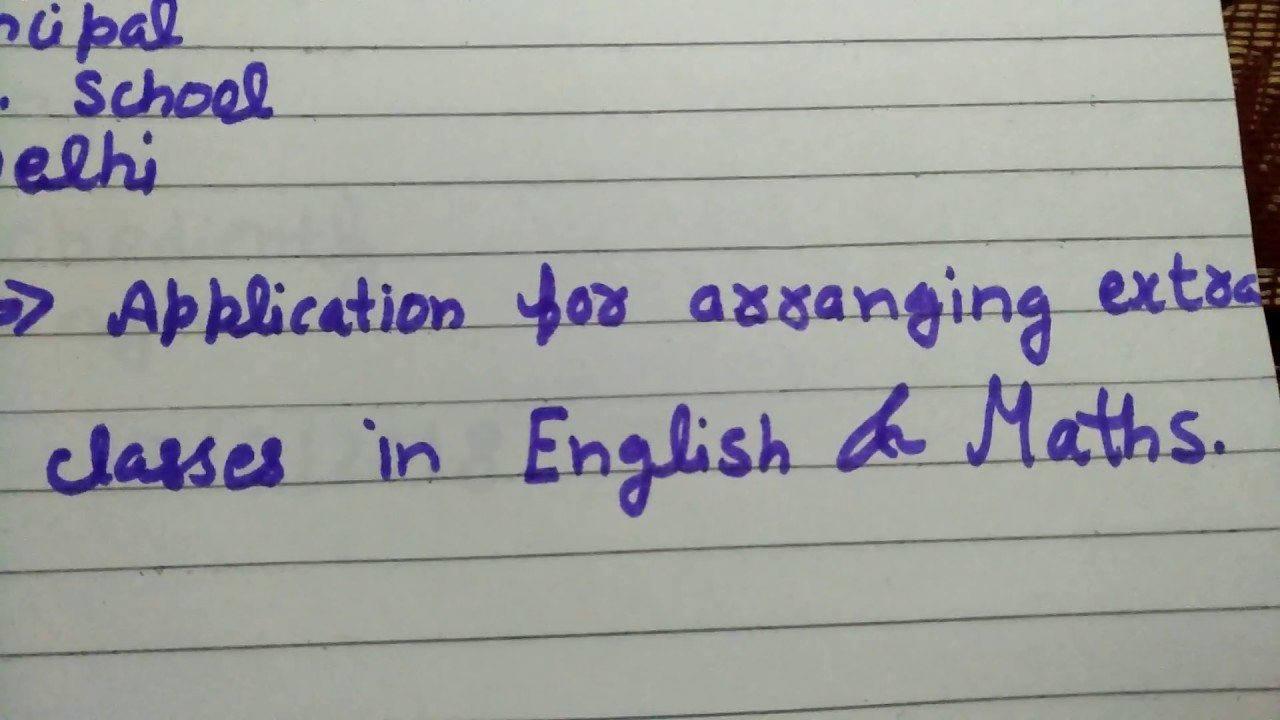 ncipal
. School
elhi
=> Application for arranging extra
classes in English & Maths.